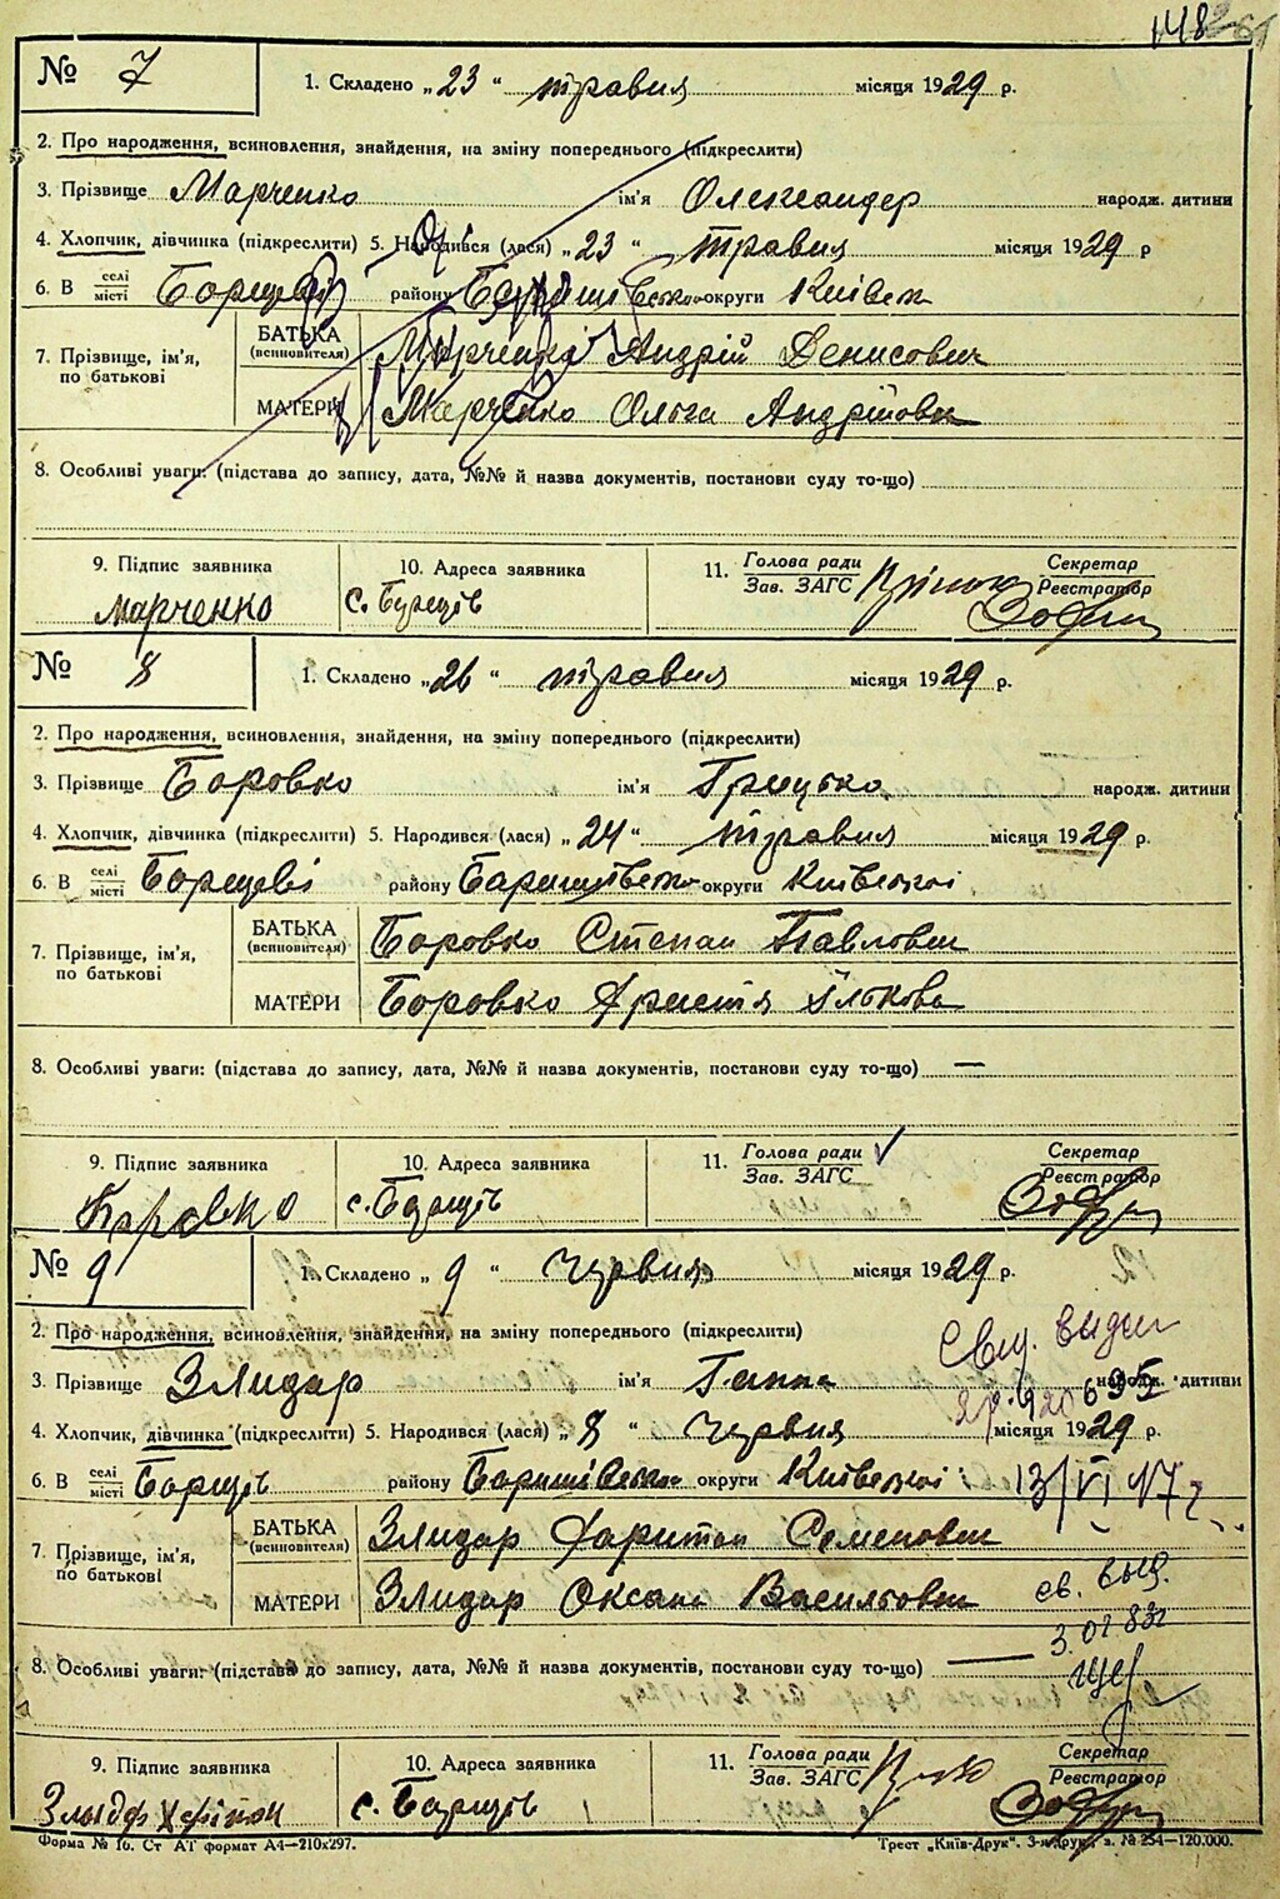 148
№ 7
1. Складено „23“ травня місяця 1929 р.
2. Про народження, всиновлення, знайдення, на зміну попереднього (підкреслити)
3. Прізвище Марченко ім'я Олександер народж. дитини
4. Хлопчик, дівчинка (підкреслити) 5. Народився (лася) „23“ травня місяця 1929 р
6. В селі/місті Борщеві району Баришівсько округи Київськ
7. Прізвище, ім'я, по батькові
БАТЬКА (всиновителя) Марченко Андрій Денисович
МАТЕРИ Марченко Ольга Андріївна
8. Особливі уваги: (підстава до запису, дата, №№ й назва документів, постанови суду то-що)
9. Підпис заявника
10. Адреса заявника
11. Голова ради/Зав. ЗАГС
Секретар/Реєстратор
Марченко
с. Борщів
№ 8
1. Складено „26“ травня місяця 1929 р.
2. Про народження, всиновлення, знайдення, на зміну попереднього (підкреслити)
3. Прізвище Боровко ім'я Грицько народж. дитини
4. Хлопчик, дівчинка (підкреслити) 5. Народився (лася) „24“ травня місяця 1929 р.
6. В селі/місті Борщеві району Баришівсько округи Київської
7. Прізвище, ім'я, по батькові
БАТЬКА (всиновителя) Боровко Степан Павлович
МАТЕРИ Боровко Христя Ількова
8. Особливі уваги: (підстава до запису, дата, №№ й назва документів, постанови суду то-що) —
9. Підпис заявника
10. Адреса заявника
11. Голова ради/Зав. ЗАГС
Секретар/Реєстратор
Боровко
с. Борщів
№ 9
1. Складено „9“ червня місяця 1929 р.
2. Про народження, всиновлення, знайдення, на зміну попереднього (підкреслити)
3. Прізвище Злидар ім'я Ганна народж. дитини
4. Хлопчик, дівчинка (підкреслити) 5. Народився (лася) „8“ червня місяця 1929 р.
6. В селі/місті Борщів району Баришівсько округи Київської
13/VI
7. Прізвище, ім'я, по батькові
БАТЬКА (всиновителя) Злидар Харитон Семенович
МАТЕРИ Злидар Оксана Васильовна
св. выд.
8. Особливі уваги: (підстава до запису, дата, №№ й назва документів, постанови суду то-що) —
9. Підпис заявника
10. Адреса заявника
11. Голова ради/Зав. ЗАГС
Секретар/Реєстратор
с. Борщів
Форма № 16. Ст АТ формат А4—210х297.
Трест „Київ-Друк“. 3-я друк. з. № 254—120.000.